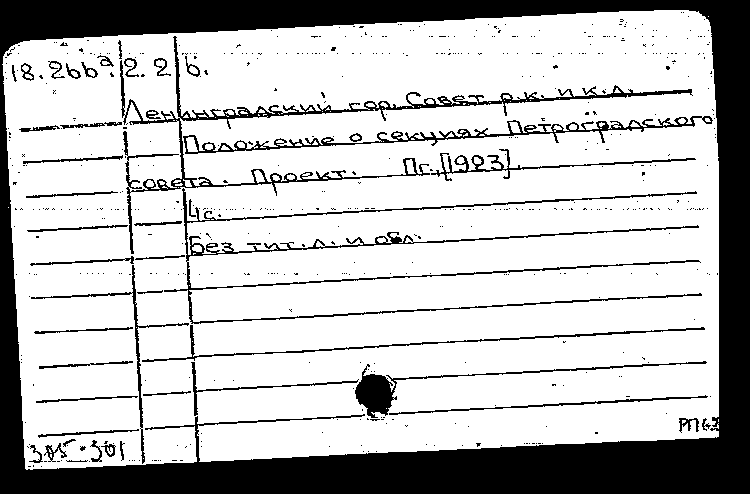 18.2bbª.2.2b.
Ленинградский гор. Совет р.к. и к.д.
Положение о секциях Петроградского
совета. Проект. Пг., [1923].
4с.
Без тит.л. и обл.
305-301